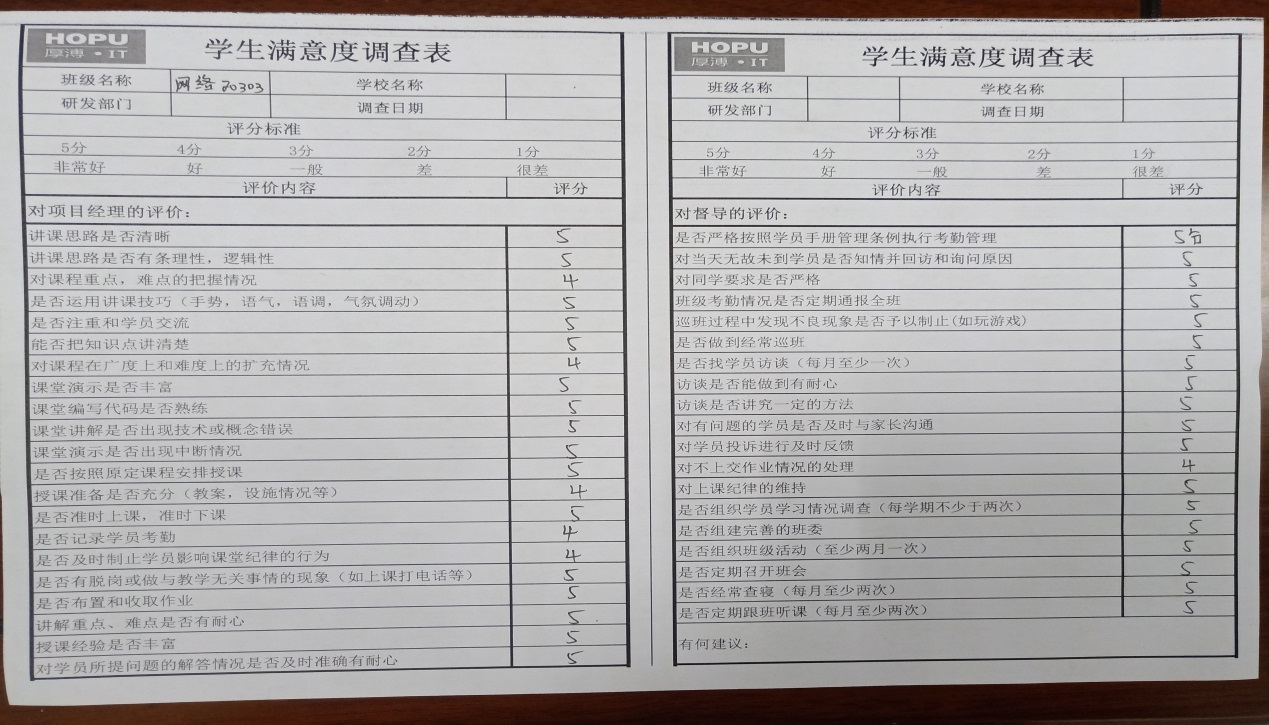 HOPU
厚溥·IT
学生满意度调查表
班级名称 网络20303 学校名称
研发部门 调查日期
评分标准
5分 4分 3分 2分 1分
非常好 好 一般 差 很差
评价内容 评分
对项目经理的评价：
讲课思路是否清晰 5
讲课思路是否有条理性，逻辑性 5
对课程重点，难点的把握情况 4
是否运用讲课技巧（手势，语气，语调，气氛调动） 5
是否注重和学员交流 5
能否把知识点讲清楚 5
对课程在广度上和难度上的扩充情况 4
课堂演示是否丰富 5
课堂编写代码是否熟练 5
课堂讲解是否出现技术或概念错误 5
课堂演示是否出现中断情况 5
是否按照原定课程安排授课 5
授课准备是否充分（教案，设施情况等） 4
是否准时上课，准时下课 5
是否记录学员考勤 4
是否及时制止学员影响课堂纪律的行为 4
是否有脱岗或做与教学无关事情的现象（如上课打电话等） 5
是否布置和收取作业 5
讲解重点、难点是否有耐心 5
授课经验是否丰富 5
对学员所提问题的解答情况是否及时准确有耐心 5
HOPU
厚溥·IT
学生满意度调查表
班级名称 学校名称
研发部门 调查日期
评分标准
5分 4分 3分 2分 1分
非常好 好 一般 差 很差
评价内容 评分
对督导的评价：
是否严格按照学员手册管理条例执行考勤管理 5分
对当天无故未到学员是否知情并回访和询问原因 5
对同学要求是否严格 5
班级考勤情况是否定期通报全班 5
巡班过程中发现不良现象是否予以制止(如玩游戏) 5
是否做到经常巡班 5
是否找学员访谈（每月至少一次） 5
访谈是否能做到有耐心 5
访谈是否讲究一定的方法 5
对有问题的学员是否及时与家长沟通 5
对学员投诉进行及时反馈 5
对不上交作业情况的处理 4
对上课纪律的维持 5
是否组织学员学习情况调查（每学期不少于两次） 5
是否组建完善的班委 5
是否组织班级活动（至少两月一次） 5
是否定期召开班会 5
是否经常查寝（每月至少两次） 5
是否定期跟班听课（每月至少两次） 5
有何建议：